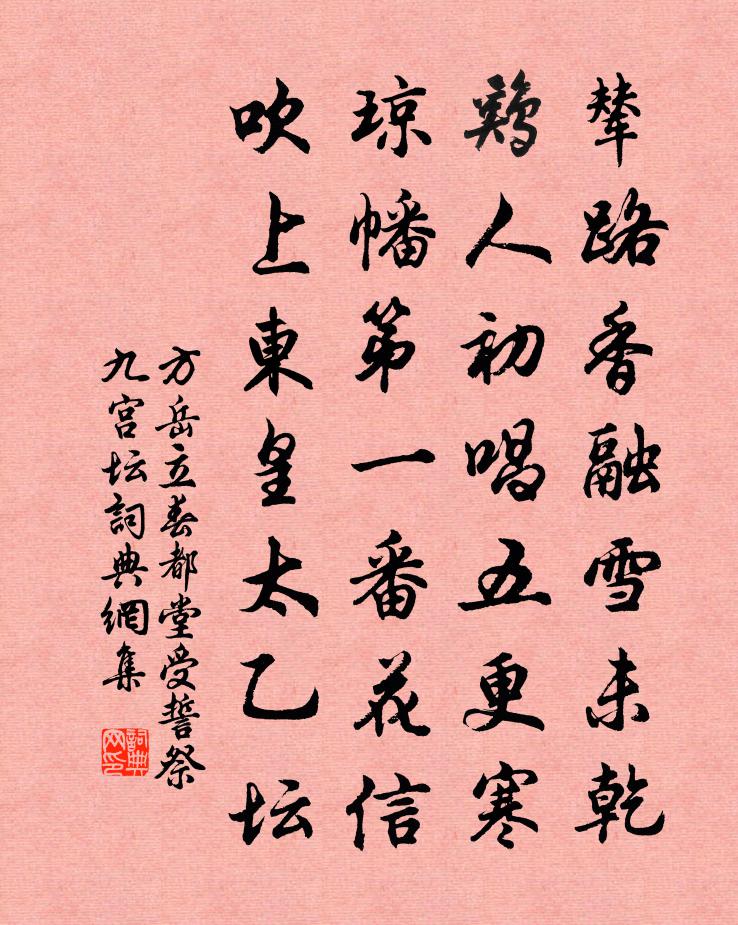 輦路香融雪未乾
鷄人初唱五更寒
琼幡第一番花信
吹上東皇太乙坛
方岳立春都堂受誓祭
九宫坛詞典網集
詞典
网印